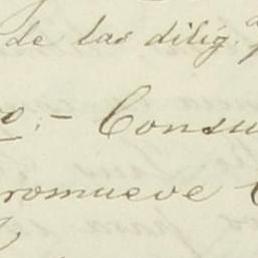 de las dilig.ª
o.- Consu
romueve